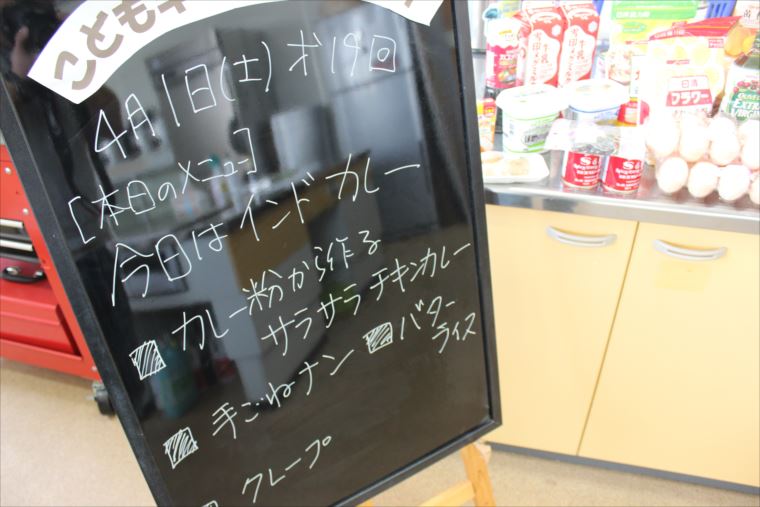 こども
4月1日(土) 才19回
[本日のメニュー]
今日はインドカレー
カレー粉から作る
サラサラチキンカレー
手ごねナン バターライス
クレープ
日清
フラワー
EXTRA